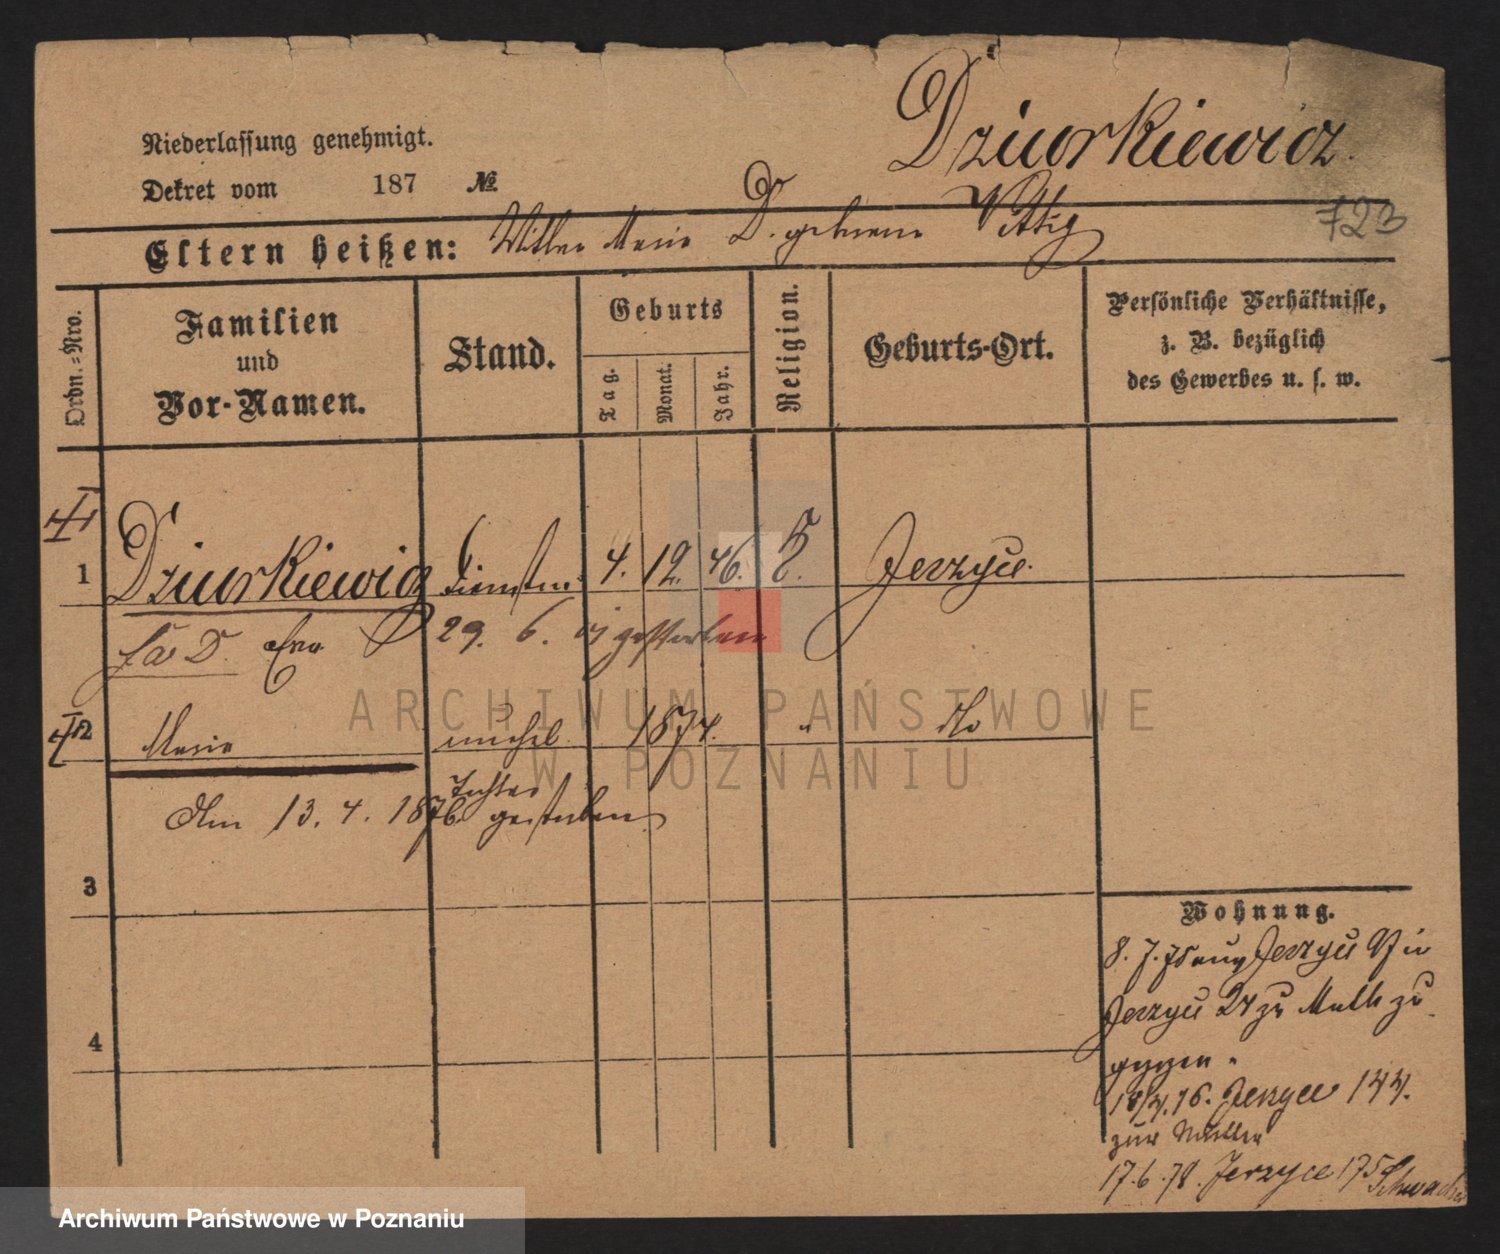 Dziurkiewicz
Niederlassung genehmigt.
Dekret vom 187 №.
723
Eltern heißen: Marie D. geborene Wittig
Ordn.-Nro.
Familien
und
Vor-Namen.
Stand.
Geburts
Tag.
Monat.
Jahr.
Religion.
Geburts-Ort.
Persönliche Verhältnisse,
z. B. bezüglich
des Gewerbes u. s. w.
1 Dziurkiewicz 4. 12. 46. Jerzyce.
29. 6. gestorben
2 Marie unehel. 1874. " dto
Tochter
Am 13. 4. 1876. gestorben
3
4
Wohnung.
8. 7. 75 Jerzyce
Jerzyce 24 zu zu
gezogen.
18/4. 76. Jerzyce 144.
zur Mutter
17. 6. 78. Jerzyce 175
ARCHIWUM PAŃSTWOWE
W POZNANIU
Archiwum Państwowe w Poznaniu